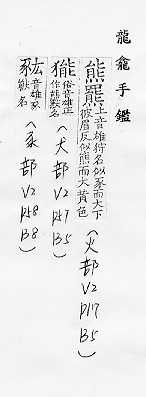 龍龕手鑑
熊羆上音雄狩名似豕而大下
彼眉反似熊而大黃色
(火部 V2 P17 B5)
俗音雄正
作熊獸名
(犬部 V2 P47 B5)
音雄豕
獸名
(豕部 V2 P48 B8)